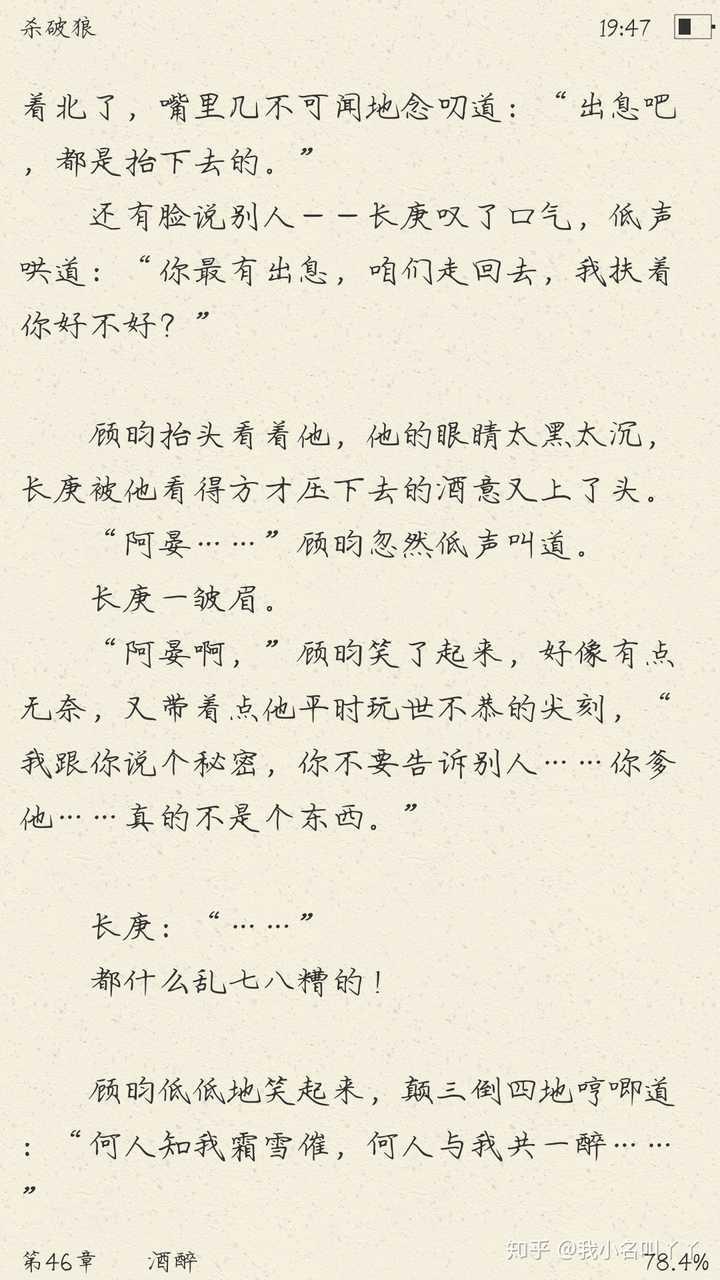 杀破狼 19:47
着北了，嘴里几不可闻地念叨道：“出息吧
，都是抬下去的。”
还有脸说别人——长庚叹了口气，低声
哄道：“你最有出息，咱们走回去，我扶着
你好不好？”
顾昀抬头看着他，他的眼睛太黑太沉，
长庚被他看得方才压下去的酒意又上了头。
“阿晏……”顾昀忽然低声叫道。
长庚一皱眉。
“阿晏啊，”顾昀笑了起来，好像有点
无奈，又带着点他平时玩世不恭的尖刻，“
我跟你说个秘密，你不要告诉别人……你爹
他……真的不是个东西。”
长庚：“……”
都什么乱七八糟的！
顾昀低低地笑起来，颠三倒四地哼唧道
：“何人知我霜雪催，何人与我共一醉……
”
知乎 @我小名叫丫丫
第46章 酒醉 78.4%